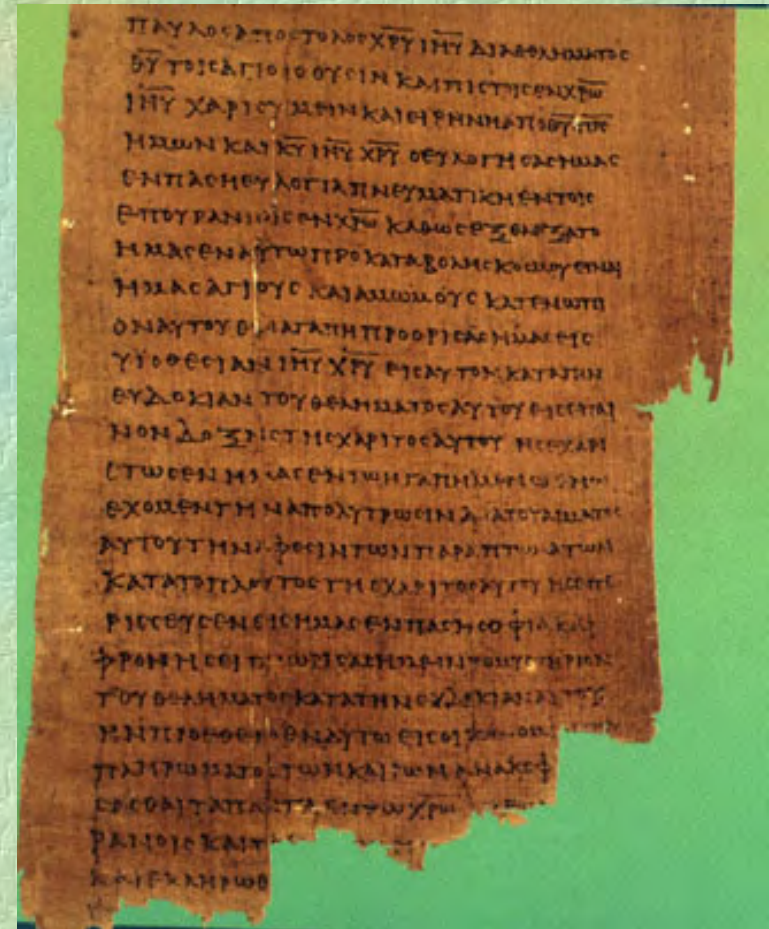 ΠΑΥΛΟΣ ΑΠΟΣΤΟΛΟΣ ΧΡΥ ΙΗΥ ΔΙΑ ΘΕΛΗΜΑΤΟΣ
ΘΥ ΤΟΙΣ ΑΓΙΟΙΣ ΟΥΣΙΝ ΚΑΙ ΠΙΣΤΟΙΣ ΕΝ ΧΡΩ
ΙΗΥ ΧΑΡΙΣ ΥΜΕΙΝ ΚΑΙ ΕΙΡΗΝΗ ΑΠΟ ΘΥ ΠΡΣ
ΗΜΩΝ ΚΑΙ ΚΥ ΙΗΥ ΧΡΥ Ο ΕΥΛΟΓΗΣΑΣ ΗΜΑΣ
ΕΝ ΠΑΣΗ ΕΥΛΟΓΙΑ ΠΝΕΥΜΑΤΙΚΗ ΕΝ ΤΟΙΣ
ΕΠΟΥΡΑΝΙΟΙΣ ΕΝ ΧΡΩ ΚΑΘΩΣ ΕΞΕΛΕΞΑΤΟ
ΗΜΑΣ ΕΝ ΑΥΤΩ ΠΡΟ ΚΑΤΑΒΟΛΗΣ ΚΟΣΜΟΥ ΕΙΝΑΙ
ΗΜΑΣ ΑΓΙΟΥΣ ΚΑΙ ΑΜΩΜΟΥΣ ΚΑΤΕΝΩΠΙ
ΟΝ ΑΥΤΟΥ ΕΝ ΑΓΑΠΗ ΠΡΟΟΡΙΣΑΣ ΗΜΑΣ ΕΙΣ
ΥΙΟΘΕΣΙΑΝ ΙΗΥ ΧΡΥ ΕΙΣ ΑΥΤΟΝ ΚΑΤΑ ΤΗΝ
ΕΥΔΟΚΙΑΝ ΤΟΥ ΘΕΛΗΜΑΤΟΣ ΑΥΤΟΥ ΕΙΣ ΕΠΑΙ
ΝΟΝ ΔΟΞΗΣ ΤΗΣ ΧΑΡΙΤΟΣ ΑΥΤΟΥ ΗΣ ΕΧΑΡΙ
ΕΝ ΤΩ ΗΓΑΠΗΜΕΝΩ ΕΝ Ω
ΕΧΟΜΕΝ ΤΗΝ ΑΠΟΛΥΤΡΩΣΙΝ ΔΙΑ ΤΟΥ ΑΙΜΑΤΟΣ
ΑΥΤΟΥ ΤΗΝ ΑΦΕΣΙΝ ΤΩΝ ΠΑΡΑΠΤΩΜΑΤΩΝ
ΚΑΤΑ ΤΟ ΠΛΟΥΤΟΣ ΤΗΣ ΧΑΡΙΤΟΣ ΑΥΤΟΥ ΗΣ ΕΠΕ
ΡΙΣΣΕΥΣΕΝ ΕΙΣ ΗΜΑΣ ΕΝ ΠΑΣΗ ΣΟΦΙΑ ΚΑΙ
ΦΡΟΝΗΣΕΙ ΓΝΩΡΙΣΑΣ ΗΜΕΙΝ ΤΟ ΜΥΣΤΗΡΙΟΝ
ΤΟΥ ΘΕΛΗΜΑΤΟΣ ΚΑΤΑ ΤΗΝ ΕΥΔΟΚΙΑΝ ΑΥΤΟΥ
ΗΝ ΠΡΟΕΘΕΤΟ ΕΝ ΑΥΤΩ ΕΙΣ
ΠΛΗΡΩΜΑΤΟΣ ΤΩΝ ΚΑΙΡΩΝ ΑΝΑΚΕΦ
ΤΑ ΠΑΝΤΑ ΕΝ ΤΩ ΧΡΩ
ΡΑΝΟΙΣ ΚΑΙ Τ
ΚΑΙ ΕΚΛΗΡΩΘ